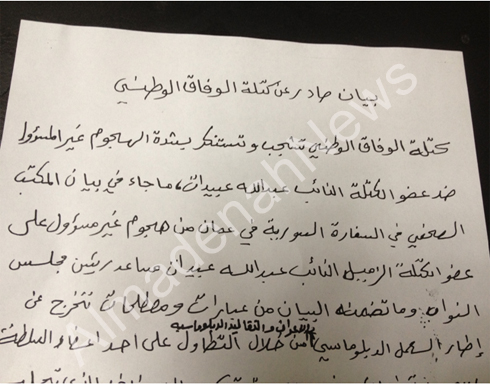 بيان صادر عن كتلة الوفاق الوطني
كتلة الوفاق الوطني تشجب وتستنكر بشدة الهجوم غير المسؤول
ضد عضو الكتلة النائب عبدالله عبيدات، ما جاء في بيان المكتب
الصحفي في السفارة السورية في عمان من هجوم غير مسؤول على
عضو الكتلة الزميل النائب عبدالله عبيدات مساعد رئيس مجلس
النواب وما تضمنه البيان من عبارات ومصطلحات تخرج عن
إطار العمل الدبلوماسي من خلال التطاول على احد اعضاء السلطة
Almadenah News